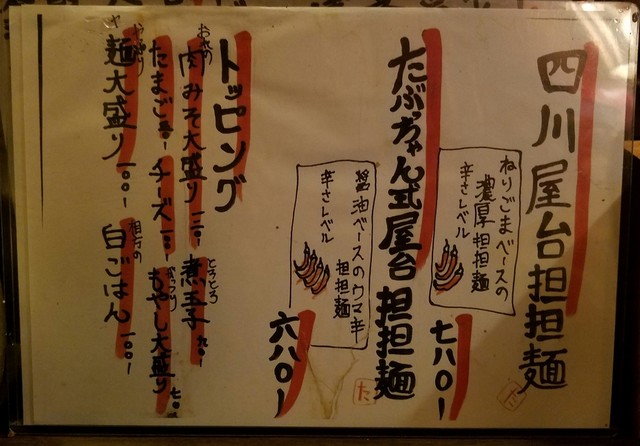 四川屋台担担麺
ねりごまベースの
濃厚担担麺
辛さレベル
七八〇ー
たぶっちゃん式屋台担担麺
醤油ベースのウマ辛
担担麺
辛さレベル
六八〇ー
トッピング
おれの
肉みそ大盛り 一二〇ー
とろとろ
煮玉子 九〇ー
たまご 五〇ー
チーズ 一〇〇ー
がっつり
もやし大盛り 七〇ー
やっぱり
麺大盛り 一〇〇ー
相方の
白ごはん 一〇〇ー
た
た